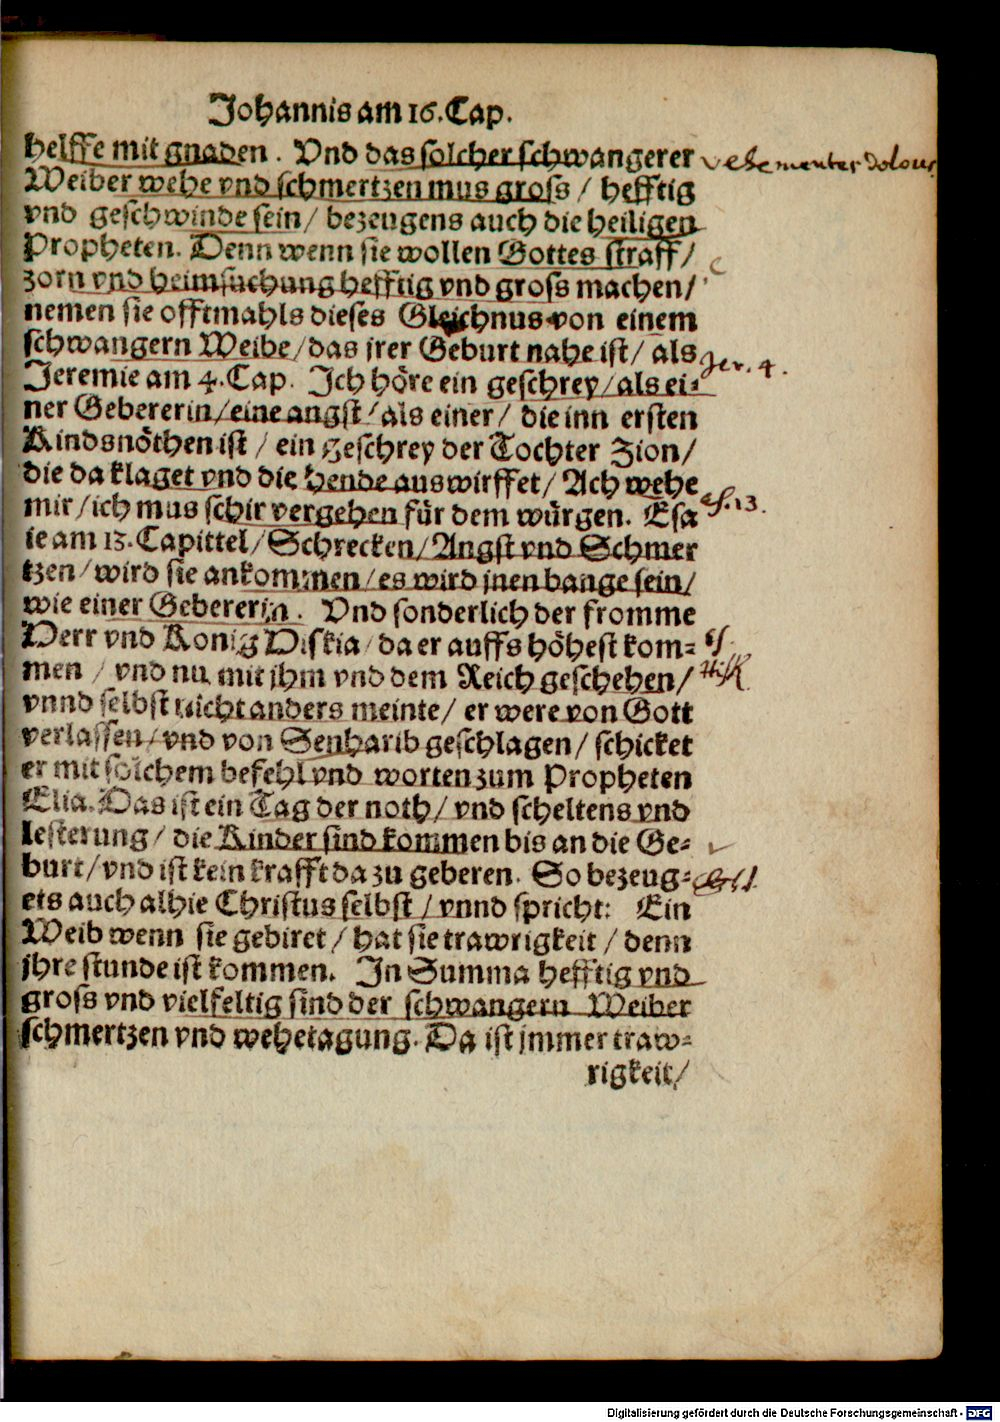 Johannis am 16. Cap.
helffe mit gnaden. Vnd das solcher schwangerer
Weiber wehe vnd schmertzen mus gross / hefftig
vnd geschwinde sein / bezeugens auch die heiligen
Propheten. Denn wenn sie wollen Gottes straff /
zorn vnd heimsuchung hefftig vnd gross machen /
nemen sie offtmahls dieses Gleichnus von einem
schwangern Weibe / das jrer Geburt nahe ist / als
Jer. 4.
Jeremie am 4. Cap. Ich höre ein geschrey / als ei-
ner Gebererin / eine angst / als einer / die inn ersten
Kindsnöthen ist / ein geschrey der Tochter Zion /
die da klaget vnd die hende auswirffet / Ach wehe
mir / ich mus schir vergehen für dem würgen. Esa
es. 13.
ie am 13. Capittel / Schrecken / Angst vnd Schmer
tzen / wird sie ankommen / es wird jnen bange sein /
wie einer Gebererin. Vnd sonderlich der fromme
Herr vnd Konig Hiskia / da er auffs höhest kom-
men / vnd nu mit jhm vnd dem Reich geschehen /
vnnd selbst nicht anders meinte / er were von Gott
verlassen / vnd von Senharib geschlagen / schicket
er mit solchem befehl vnd worten zum Propheten
Elia. Das ist ein Tag der noth / vnd scheltens vnd
lesterung / die Kinder sind kommen bis an die Ge-
burt / vnd ist kein krafft da zu geberen. So bezeug-
ets auch alhie Christus selbst / vnnd spricht: Ein
Weib wenn sie gebiret / hat sie trawrigkeit / denn
jhre stunde ist kommen. In Summa hefftig vnd
gross vnd vielfeltig sind der schwangern Weiber
schmertzen vnd wehetagung. Da ist jmmer traw-
rigkeit /
Digitalisierung gefördert durch die Deutsche Forschungsgemeinschaft - DFG